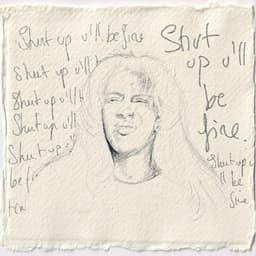 Shut up u'll be fine
Shut up u'll b
Shut up u'll b
Shut up u'll
Shut up
be fi
Shut
up u'll
be
fine.
Shut up u
'll be
fine